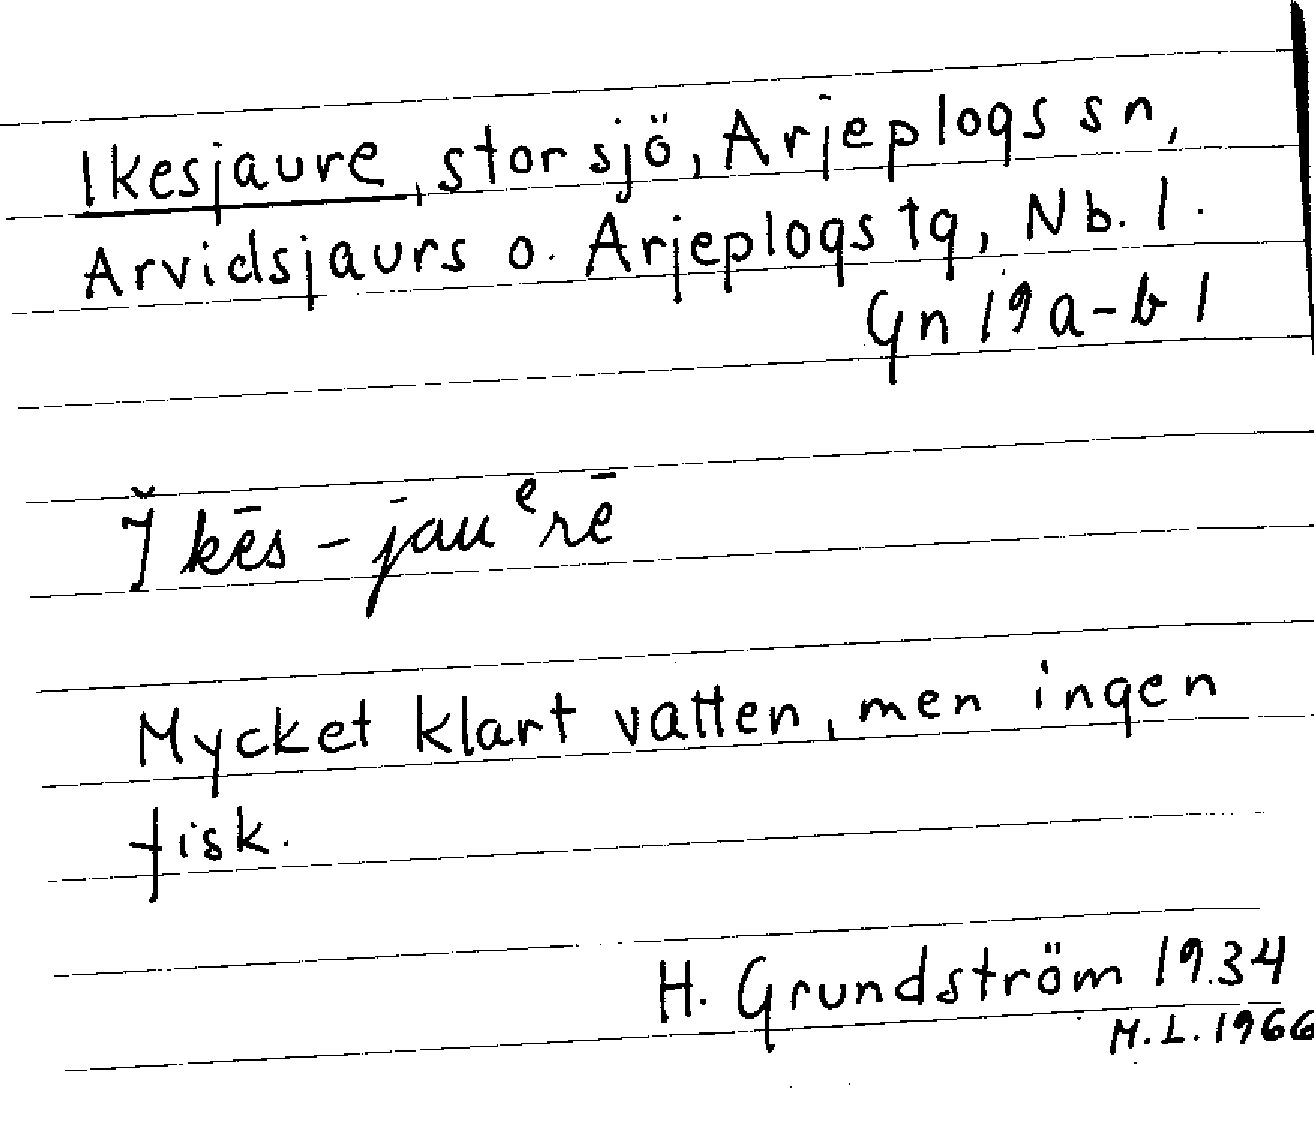 Ikesjaure, stor sjö, Arjeplogs sn,
Arvidsjaurs o. Arjeplogs tg, Nb. l.
Gn 19 a-b 1
Ĭkēs-jauᵉrē
Mycket klart vatten, men ingen
fisk.
H. Grundström 1934
H.L. 1966